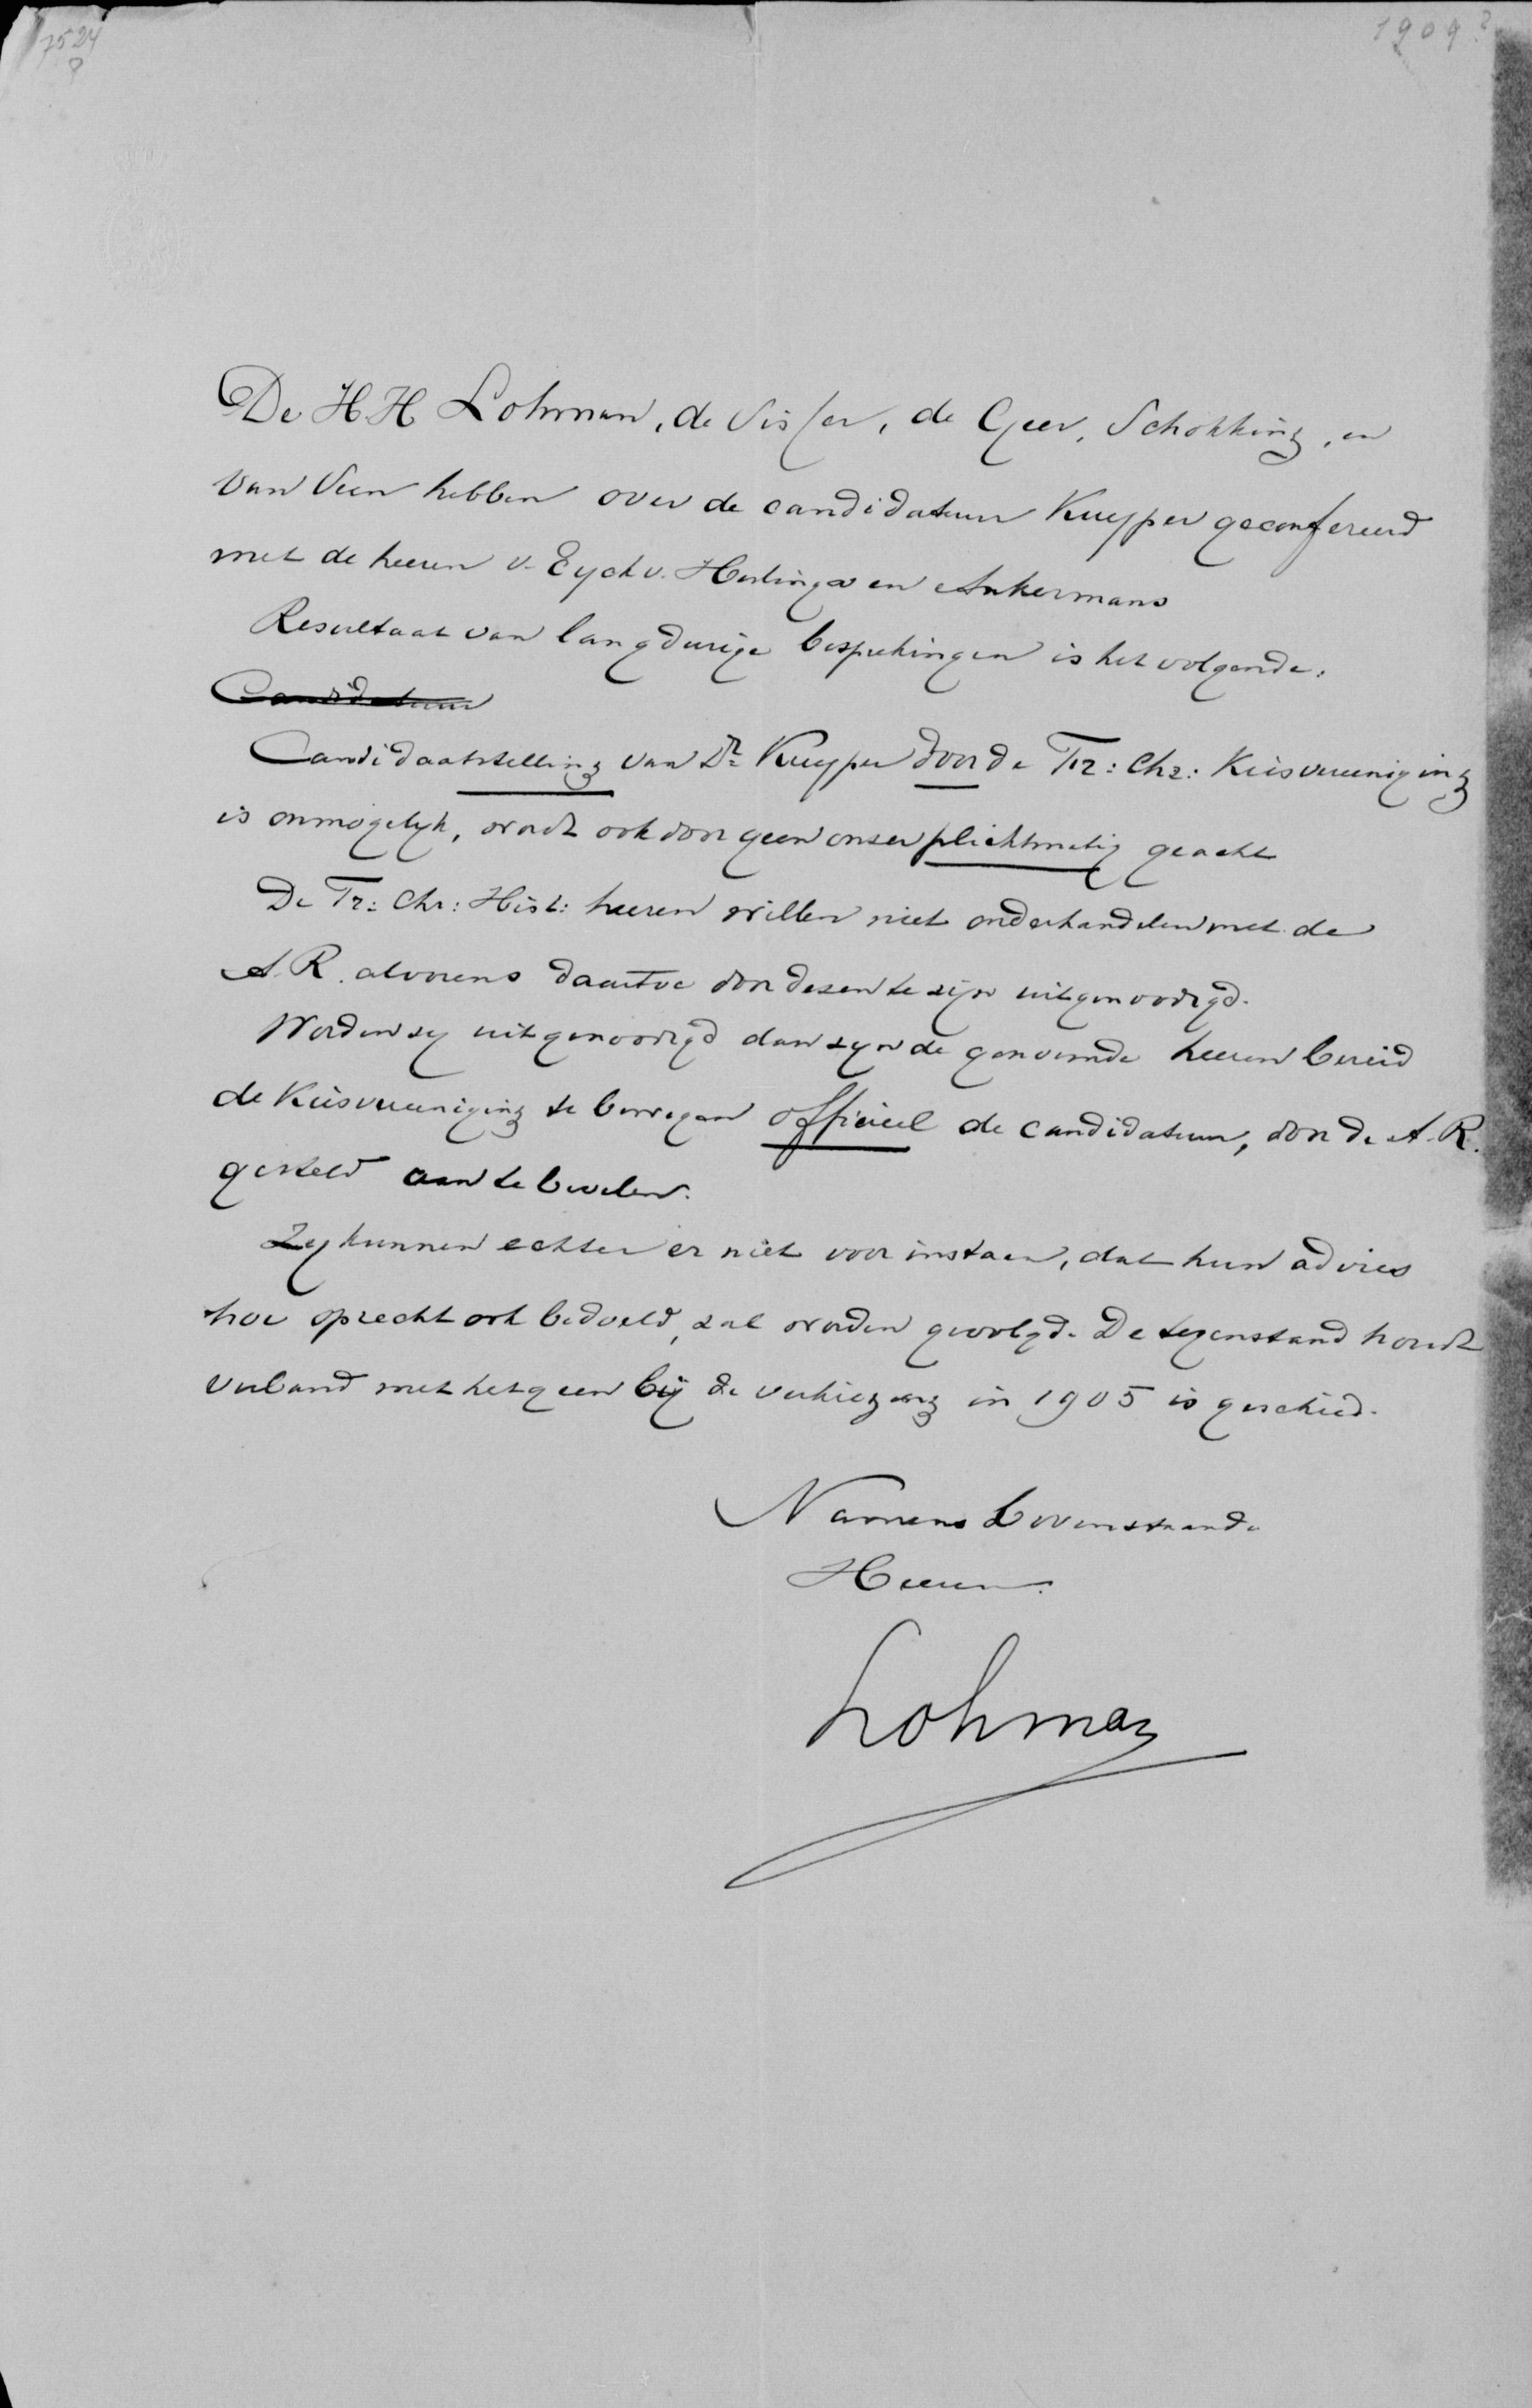 7524
1909?
De H.H Lohman, de Visser, de Geer, Schokking, en
van Veen hebben over de candidatuur Kuyper geconfereerd
met de heeren v. Eyck v. Heslinga en Ankermans
Resultaat van langdurige besprekingen is het volgende.
Candidatuur
Candidaatstelling van Dr Kuyper door de Fr: Chr: Kiesvereeniging
is onmogelyk, wordt ook door geen onzer plichtmatig geacht
De Fr: Chr: Hist: heeren willen niet onderhandelen met de
A.R. alvorens daartoe door dezen te zijn uitgenoodigd.
Worden zy uitgenoodigd dan zyn de genoemde heeren bereid
de Kiesvereeniging te bewegen officieel de candidatuur, door de A.R.
gesteld aan te bevelen.
Zy kunnen echter er niet voor instaan, dat hun advies
hoe oprecht ook bedoeld, zal worden gevolgd. De tegenstand houdt
verband met hetgeen bij de verkiezing in 1905 is geschied.
Namens bovenstaande
Heeren.
Lohman